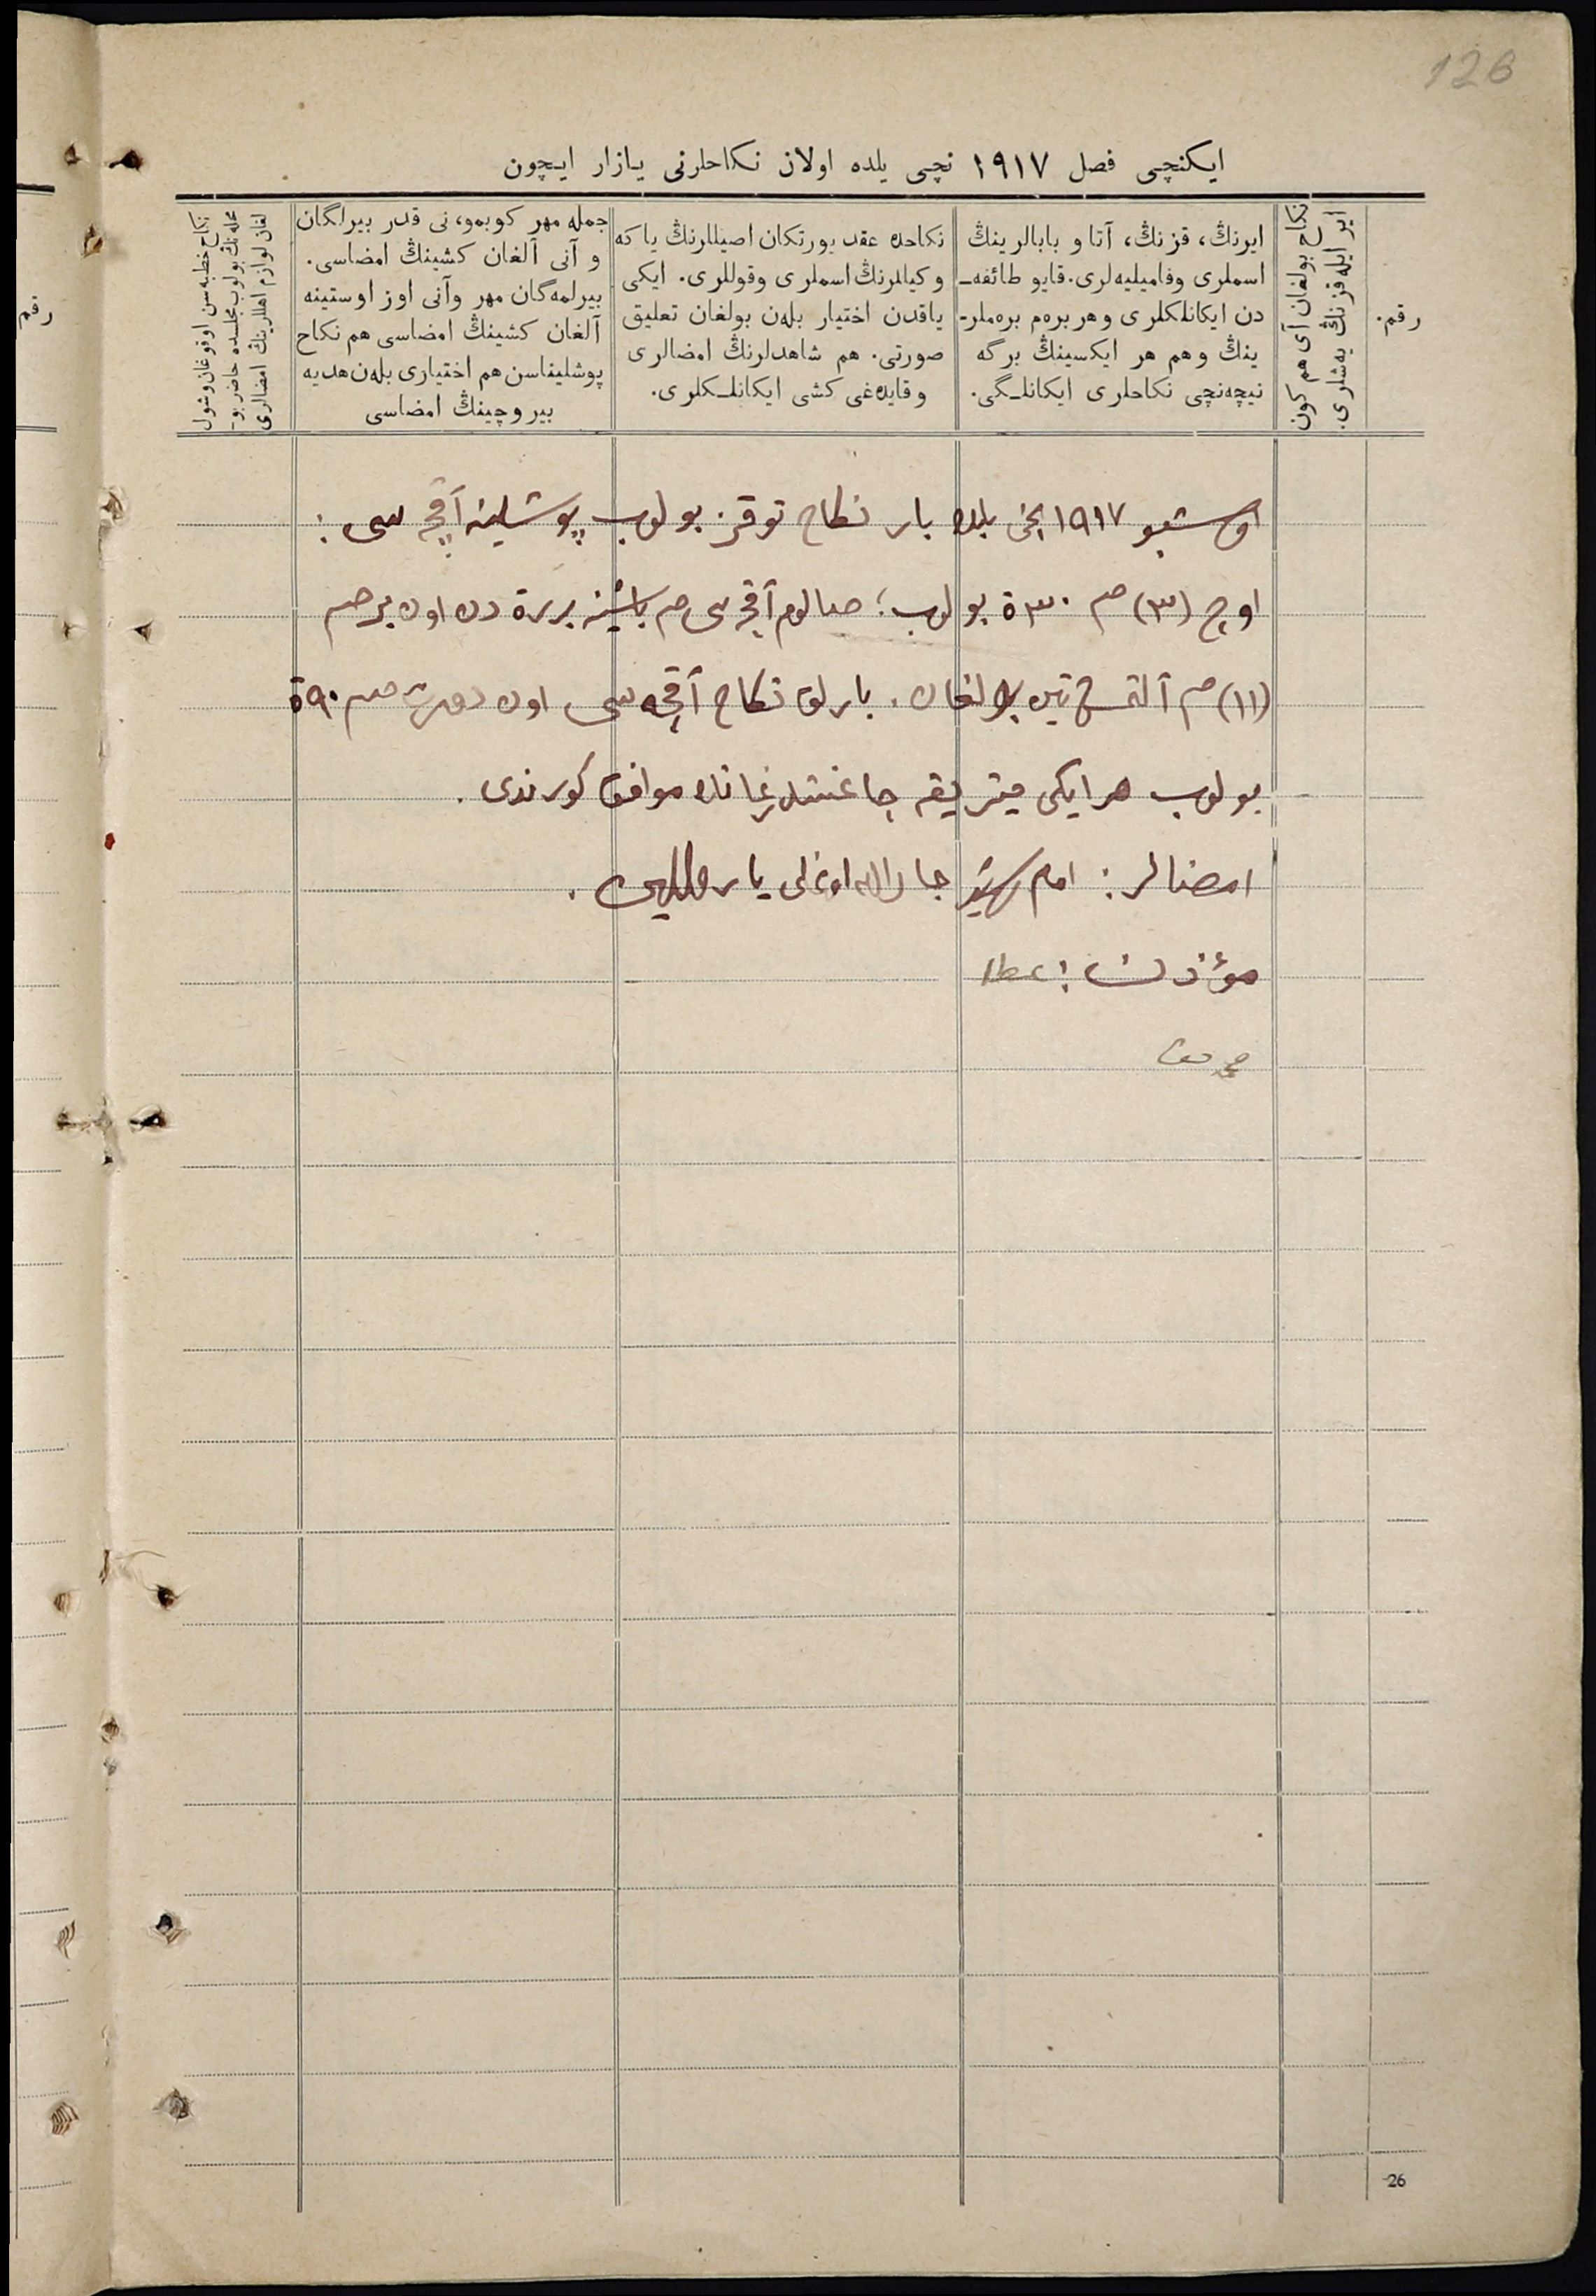 126
ايكنچی فصل ١٩١٧ نچی يلده اولان نكاحلرنی يازار ايچون
رقم.
نكاح بولغان آی هم كون
اير ايله قزنڭ يەشلری.
ايرنڭ، قزنڭ، آتا و بابالرينڭ
اسملری وفاميليەلری. قايو طائفه‌ـ
دن ايكانلكلری وهر برەم برەملرـ
ينڭ وهم هر ايكسينڭ برگه
نيچەنچی نكاحلری ايكانلـگی.
نكاحده عقد يورتكان اصيللرنڭ ياكه
وكيللرنڭ اسملری وقوللری. ايكی
ياقدن اختيار بلەن بولغان تعليق
صورتی. هم شاهدلرنڭ امضالری
وقايداغی كشی ايكانلـكلری.
جمله مهر كوبمو، نی قدر بيرلگان
و آنی آلغان كشينڭ امضاسی.
بيرلمەگان مهر وآنی اوز اوستينه
آلغان كشينڭ امضاسی هم نكاح
پوشليناسن هم اختياری بلەن هديه
بيروچينڭ امضاسی
نكاح خطبەسن اوقوغان وشول
محلەنڭ بولوب مجلسده حاضر بوـ
لغان لوازم اهللرينڭ امضالری
اوشبو ١٩١٧ نچی يلده بار نكاح توقز بولوب پوشلينه آقچه سی:
اوچ (٣) صم ٣٠ ة بولوب؛ آقچه سی هم باشينه بررة دن اون بر صم
(١١) صم آلتمش تين بولغان. بارلق نكاح آقچه سی اون دورت صم ٩٠ ة
بولوب هر ايكی ميتريقه چاغشدرغانده موافق كورندی.
امضالر: امام جارالله اوغلی يارمللين.
مؤذن: عطا
رقم
26